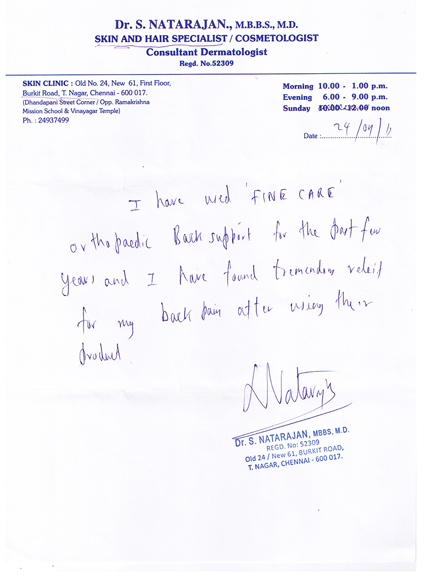 Dr. S. NATARAJAN., M.B.B.S., M.D.
SKIN AND HAIR SPECIALIST / COSMETOLOGIST
Consultant Dermatologist
Regd. No.52309
SKIN CLINIC : Old No. 24, New 61, First Floor,
Burkit Road, T. Nagar, Chennai - 600 017.
(Dhandapani Street Corner / Opp. Ramakrishna
Mission School & Vinayagar Temple)
Ph. : 24937499
Morning 10.00 - 1.00 p.m.
Evening 6.00 - 9.00 p.m.
Sunday 10.00-12.00 noon
Date : 24/09/11
I have used 'FINE CARE'
orthopaedic Back support for the past few
years and I have found tremendous relief
for my back pain after using their
product
S Natarajan
Dr. S. NATARAJAN, MBBS, M.D.
REGD. No: 52309
Old 24 / New 61, BURKIT ROAD,
T. NAGAR, CHENNAI - 600 017.